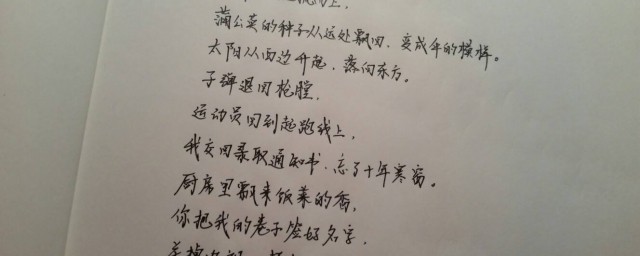 上，
蒲公英的种子从远处飘回，变成伞的模样。
太阳从西边升起，落向东方。
子弹退回枪膛，
运动员回到起跑线上，
我交回录取通知书，忘了十年寒窗。
厨房里飘来饭菜的香，
你把我的卷子签好名字，